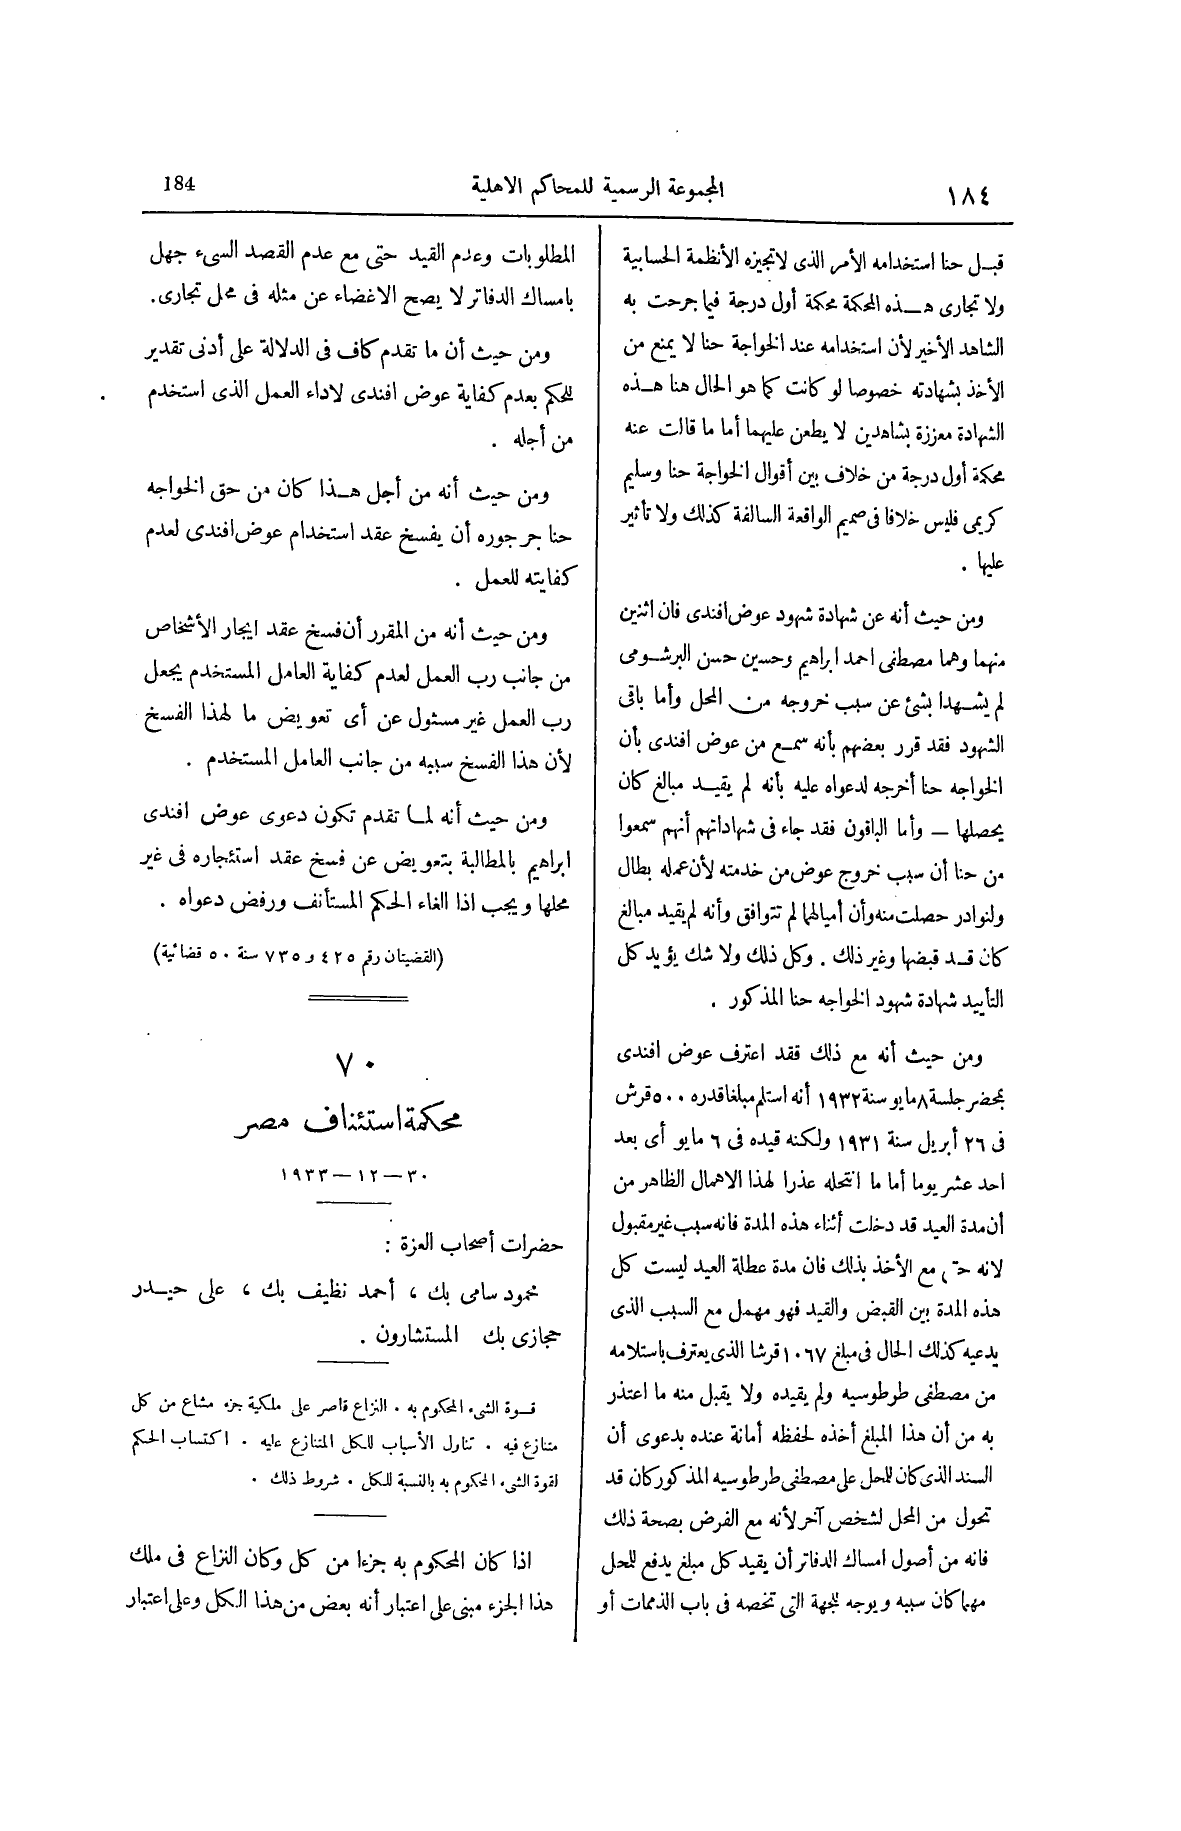 ١٨٤
المجموعة الرسمية للمحاكم الاهلية
184
قبل حنا استخدامه الأمر الذى لا تجيزه الأنظمة الحسابية
ولا تجارى هذه المحكمة محكمة أول درجة فيما جرحت به
الشاهد الأخير لأن استخدامه عند الخواجة حنا لا يمنع من
الأخذ بشهادته خصوصا لو كانت كما هو الحال هنا هذه
الشهادة معززة بشاهدين لا يطعن عليهما أما ما قالت عنه
محكمة أول درجة من خلاف بين أقوال الخواجة حنا وسليم
كريمى فليس خلافا فى صميم الواقعة السالفة كذلك ولا تأثير
عليها .
ومن حيث أنه عن شهادة شهود عوض افندى فان اثنين
منهما وهما مصطفى احمد ابراهيم وحسين حسن البرشومى
لم يشهدا بشئ عن سبب خروجه من المحل وأما باقى
الشهود فقد قرر بعضهم بأنه سمع من عوض افندى بأن
الخواجه حنا أخرجه لدعواه عليه بأنه لم يقيد مبالغ كان
يحصلها – وأما الباقون فقد جاء فى شهاداتهم أنهم سمعوا
من حنا أن سبب خروج عوض من خدمته لأن عمله بطال
ولنوادر حصلت منه وأن أميالهما لم تتوافق وأنه لم يقيد مبالغ
كان قد قبضها وغير ذلك . وكل ذلك ولا شك يؤيد كل
التأييد شهادة شهود الخواجه حنا المذكور .
ومن حيث أنه مع ذلك فقد اعترف عوض افندى
بمحضر جلسة ٨ مايو سنة ١٩٣٢ أنه استلم مبلغا قدره ٥٠٠ قرش
فى ٢٦ أبريل سنة ١٩٣١ ولكنه قيده فى ٦ مايو أى بعد
احد عشر يوما أما ما انتحله عذرا لهذا الاهمال الظاهر من
أن مدة العيد قد دخلت أثناء هذه المدة فانه سبب غير مقبول
لانه حتى مع الأخذ بذلك فان مدة عطلة العيد ليست كل
هذه المدة بين القبض والقيد فهو مهمل مع السبب الذى
يدعيه كذلك الحال فى مبلغ ١٠٦٧ قرشا الذى يعترف باستلامه
من مصطفى طوطوسيه ولم يقيده ولا يقبل منه ما اعتذر
به من أن هذا المبلغ أخذه لحفظه أمانة عنده بدعوى أن
السند الذى كان للمحل على مصطفى طرطوسيه المذكور كان قد
تحول من المحل لشخص آخر لأنه مع الفرض بصحة ذلك
فانه من أصول امساك الدفاتر أن يقيد كل مبلغ يدفع للمحل
مهما كان سببه ويوجه للجهة التى تخصه فى باب الذمات أو
المطلوبات وعدم القيد حتى مع عدم القصد السىء جهل
بامساك الدفاتر لا يصح الاغضاء عن مثله فى محل تجارى .
ومن حيث أن ما تقدم كاف فى الدلالة على أدنى تقدير
للحكم بعدم كفاية عوض افندى لاداء العمل الذى استخدم
من أجله .
ومن حيث أنه من أجل هذا كان من حق الخواجه
حنا جرجوره أن يفسخ عقد استخدام عوض افندى لعدم
كفايته للعمل .
ومن حيث أنه من المقرر أن فسخ عقد ايجار الأشخاص
من جانب رب العمل لعدم كفاية العامل المستخدم يجعل
رب العمل غير مسئول عن أى تعويض ما لهذا الفسخ
لأن هذا الفسخ سببه من جانب العامل المستخدم .
ومن حيث أنه لما تقدم تكون دعوى عوض افندى
ابراهيم بالمطالبة بتعويض عن فسخ عقد استئجاره فى غير
محلها ويجب اذا الغاء الحكم المستأنف ورفض دعواه .
(القضيتان رقم ٤٢٥ و ٧٣٥ سنة ٥٠ قضائية)
٧٠
محكمة استئناف مصر
٣٠ – ١٢ – ١٩٣٣
حضرات أصحاب العزة :
محمود سامى بك ، أحمد نظيف بك ، على حيدر
حجازى بك المستشارون .
قوة الشىء المحكوم به . النزاع قاصر على ملكية جزء مشاع من كل
متنازع فيه . تناول الأسباب للكل المتنازع عليه . اكتساب الحكم
لقوة الشىء المحكوم به بالنسبة للكل . شروط ذلك .
اذا كان المحكوم به جزءا من كل وكان النزاع فى ملك
هذا الجزء مبنى على اعتبار أنه بعض من هذا الكل وعلى اعتبار